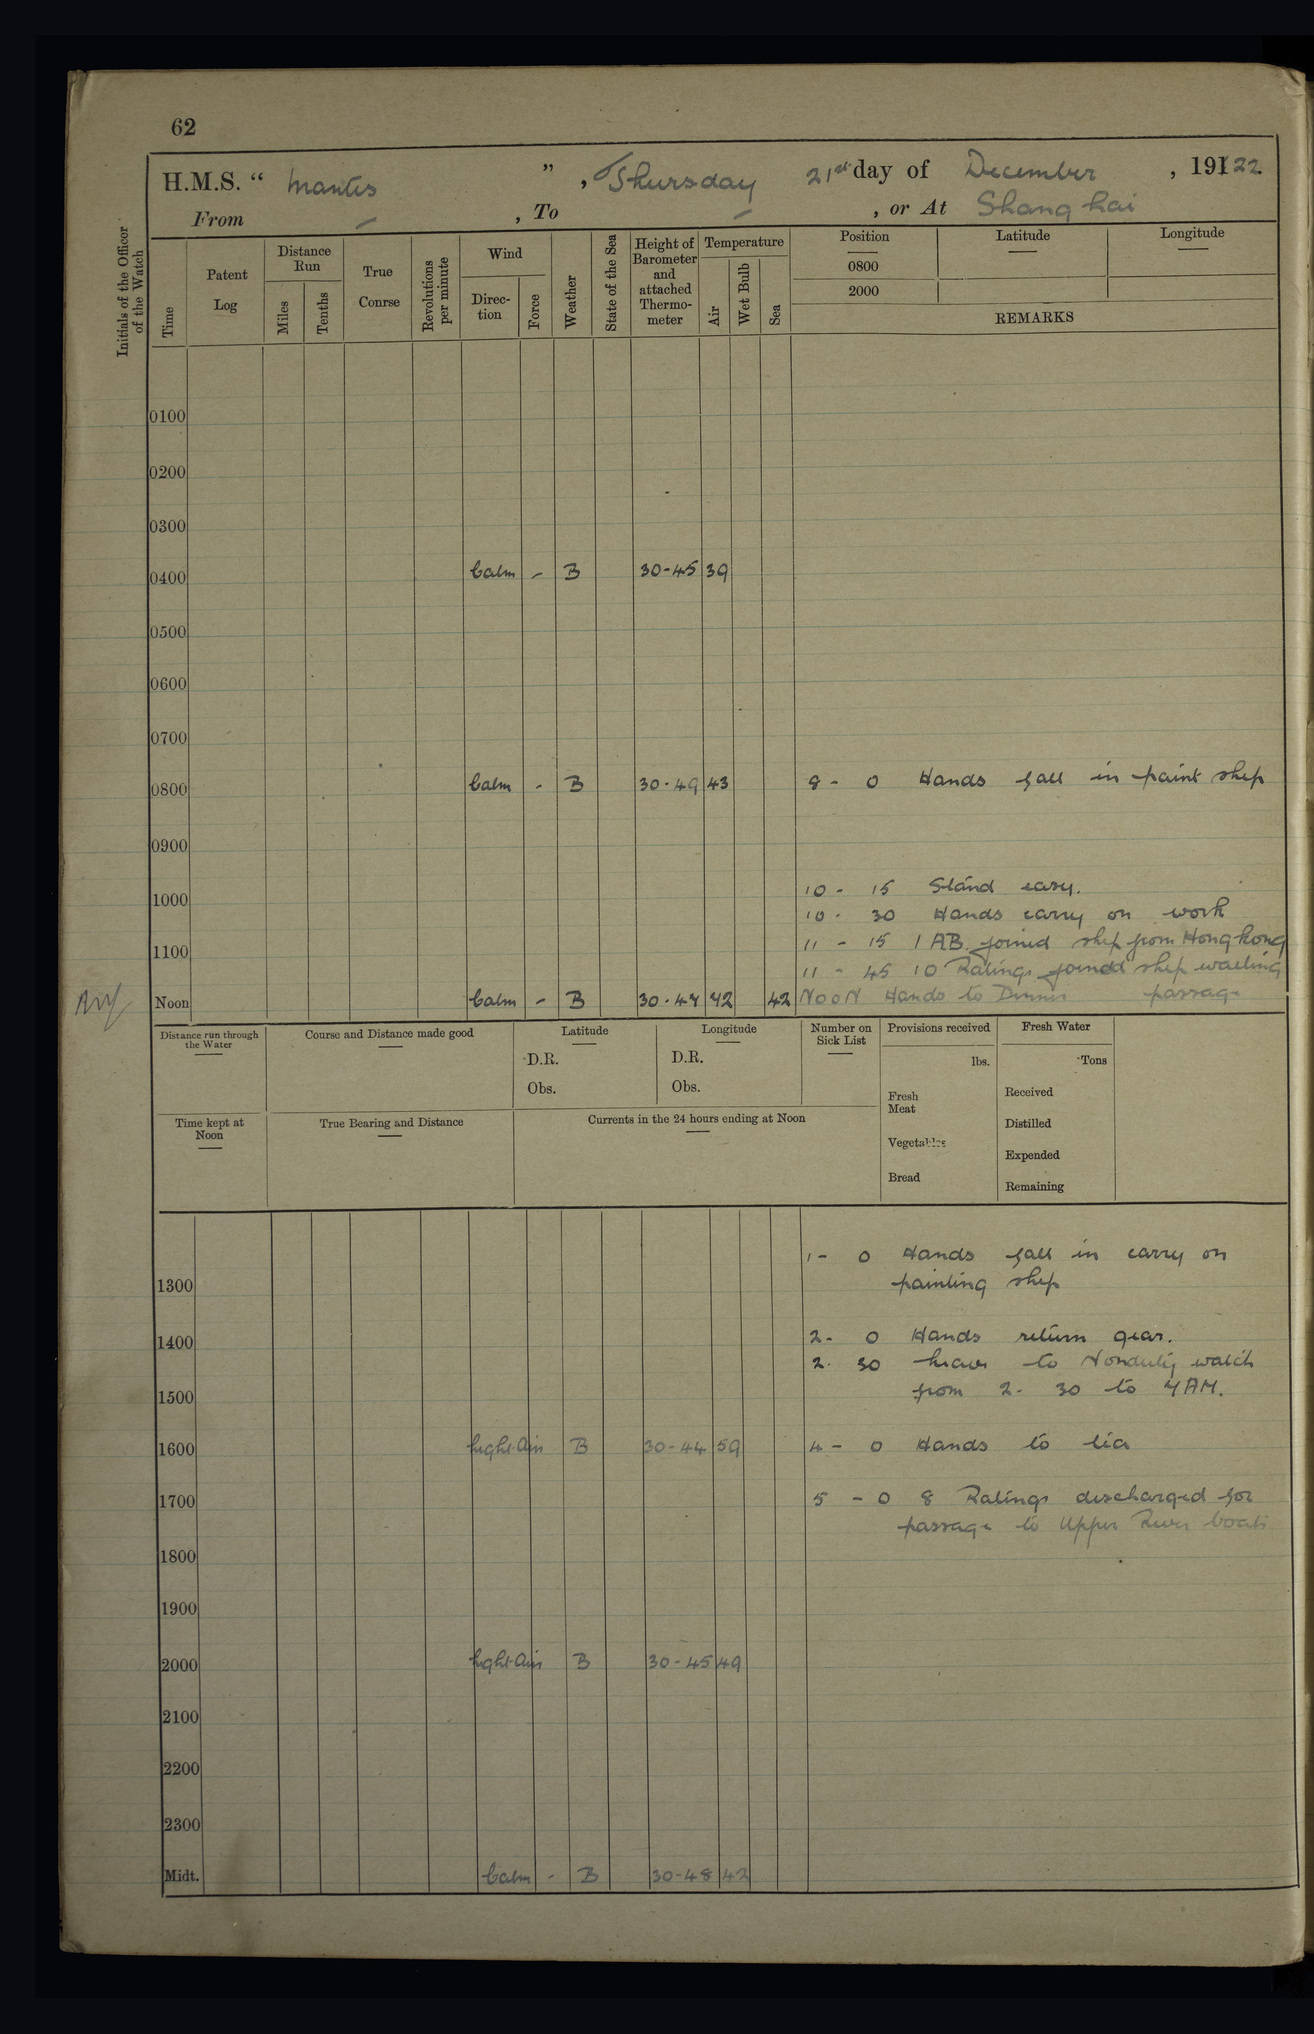 62
H.M.S. “ Mantis ”, Thursday 21st day of December, 19122
From - , To - , or At Shanghai
Initials of the Officer of the Watch
Time
Patent Log
Distance Run
Miles
Tenths
True Course
Revolutions per minute
Wind
Direction
Force
Weather
State of the Sea
Height of Barometer and attached Thermometer
Temperature
Air
Wet Bulb
Sea
Position
Latitude
Longitude
0800
2000
REMARKS
0100
0200
0300
0400 Calm - B 30-45 39
0500
0600
0700
0800 Calm - B 30-49 43 8 - 0 Hands fall in paint ship
0900
10 - 15 Stand easy.
1000
10 - 30 Hands carry on work
11 - 15 1 AB. joined ship from Hong Kong
1100
11 - 45 10 Ratings joined ship waiting passage
Noon Calm - B 30-47 42 42 NOON Hands to Dinner
Distance run through the Water
Course and Distance made good
Latitude
D.R.
Obs.
Longitude
D.R.
Obs.
Number on Sick List
Provisions received
lbs.
Fresh Meat
Vegetables
Bread
Fresh Water
Tons
Received
Distilled
Expended
Remaining
Time kept at Noon
True Bearing and Distance
Currents in the 24 hours ending at Noon
1 - 0 Hands fall in carry on
1300 painting ship
1400 2 - 0 Hands return gear.
2 - 30 to Nonduty watch
from 2 - 30 to 7AM.
1500
1600 Light Air B 30-44 59 4 - 0 Hands to tea
1700 5 - 0 8 Ratings discharged for
passage to Upper River boats
1800
1900
2000 Light Air B 30-45 49
2100
2200
2300
Midt. Calm - B 30-48 42